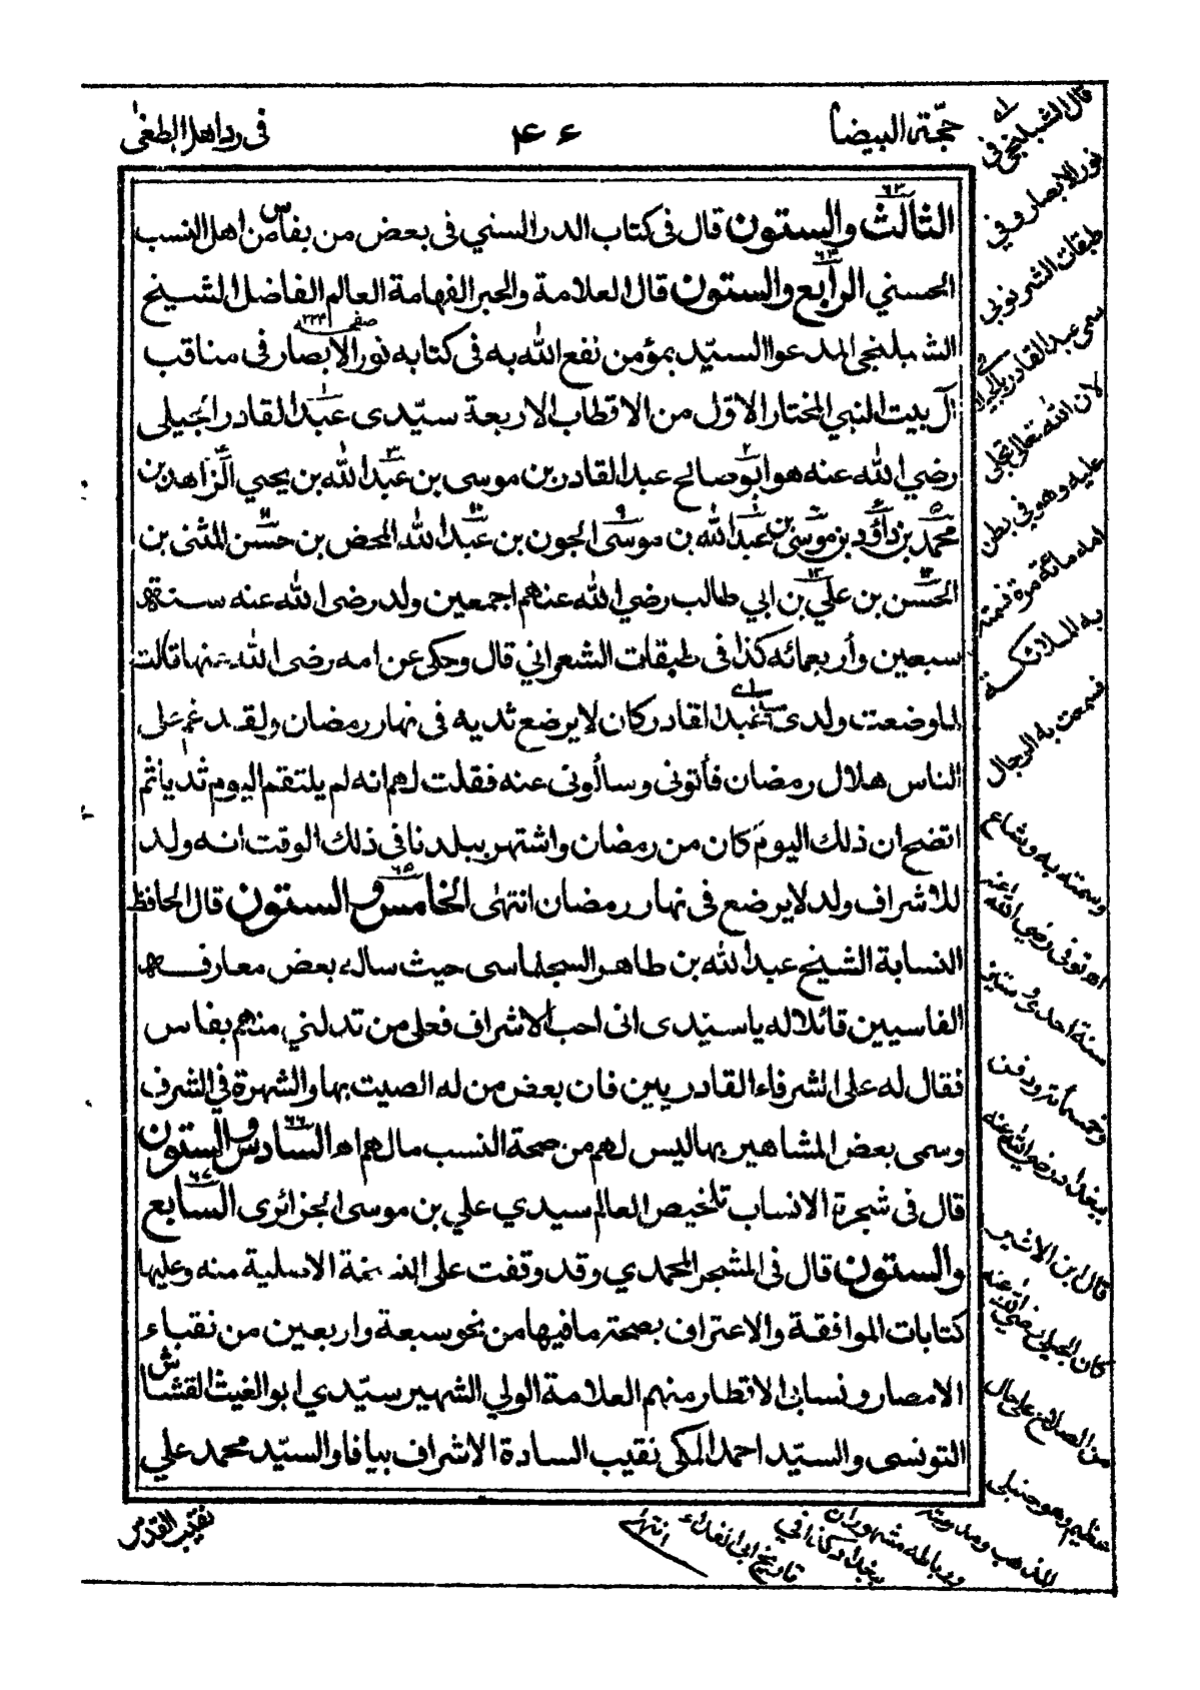 حجّة البيضاء
٤٦
فى رد اهل الطغىٰ
الثالث والستون قال فى كتاب الدر السني فى بعض من بفاس من اهل النسب
الحسني الرابع والستون قال العلامة والحبر الفهامة العالم الفاضل الشيخ
الشبلنجى المدعوا السيّد بمؤمن نفع الله به فى كتابه نور الابصار فى مناقب
آل بيت النبي المختار الاوّل من الاقطاب الاربعة سيّدى عبد القادر الجيلى
رضي الله عنه هو ابو صالح عبد القادر بن موسى بن عبد الله بن يحيي الزاهد بن
محمّد بن داؤد بن موسى بن عبد الله بن موسى الجون بن عبد الله المحض بن حسن المثنى بن
الحسن بن علي بن ابي طالب رضي الله عنهم اجمعين ولد رضى الله عنه سنة
سبعين وأربعمائه كذا فى طبقات الشعراني قال وحكى عن امه رضى الله عنها قالت
لما وضعت ولدى عبد القادر كان لا يرضع ثديه فى نهار رمضان ولقد غم على
الناس هلال رمضان فأتونى وسألونى عنه فقلت لهم انه لم يلتقم اليوم ثديا ثم
اتضح ان ذلك اليوم كان من رمضان واشتهر ببلدنا فى ذلك الوقت انه ولد
للاشراف ولد لا يرضع فى نهار رمضان انتهى الخامس والستون قال الحافظ
النسابة الشيخ عبد الله بن طاهر السجلماسى حيث ساله بعض معارفه
الفاسيين قائلا له ياسيّدى انى احب الاشراف فعلى من تدلني منهم بفاس
فقال له على الشرفاء القادريين فان بعض من له الصيت بها والشهرة فى الشرف
وسمى بعض المشاهير بها ليس لهم من صحة النسب ما لهم اه السادس والستون
قال فى شجرة الانساب تلخيص العالم سيدي علي بن موسى الجزائرى السابع
والستون قال فى المشجر المحمدي وقد وقفت على النسخة الاصلية منه وعليها
كتابات الموافقة والاعتراف بصحة ما فيها من نحو سبعة واربعين من نقباء
الامصار ونسابى الاقطار منهم العلامة الولي الشهير سيّدي ابو الغيث القشاش
التونسى والسيّد احمد المكى نقيب السادة الاشراف بيافا والسيّد محمد علي
نقيب القدس
قال الشبلنجى فى
نور الابصار وفي
طبقات الشرنوبى
سمى عبد القادر
لان الله تعالى تجلى
عليه وهو في بطن
امه مائة مرة
به الملائكة
فسمعت به الرجال
وسمته به وشاع
اه توفى رضي الله عنه
سنة احدى وستين
وخمسمأئة ودفن
ببغداد رضي الله عنه
قال ابن الاثير
كان الجيلى رضي الله عنه
من الصلاح على حال
عظيم وهو حنبلى
المذهب ومدرسته
ورباطه مشهوران
ببغداد كذا في
تاريخ ابى الفداء
انتهى